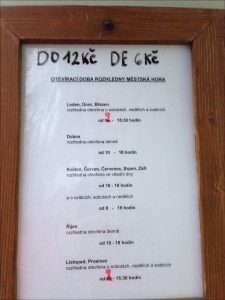 DO 12KČ DE 6KČ
OTEVÍRACÍ DOBA ROZHLEDNY MĚSTSKÁ HORA
Leden, Únor, Březen
rozhledna otevřena o sobotách, nedělích a svátcích
od - 15:30 hodin
Duben
rozhledna otevřena denně
od 10 - 16 hodin
Květen, Červen, Červenec, Srpen, Září
rozhledna otevřena ve všední dny
od 10 - 18 hodin
a o svátcích, sobotách a nedělích
od 9 - 19 hodin
Říjen
rozhledna otevřena denně
od 10 - 16 hodin
Listopad, Prosinec
rozhledna otevřena o sobotách, nedělích a svátcích
od - 15:30 hodin